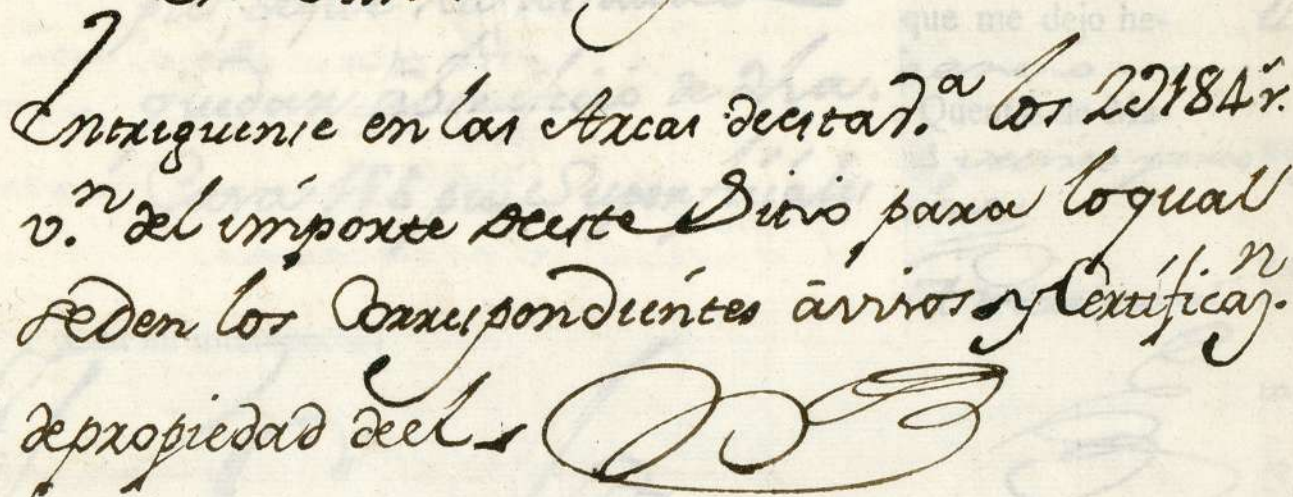 Entreguense en las Arcas deesta R.ª los 2U184 r.
v.n del importe deeste Sitio para loqual
seden los Correspondientes avisos y Certificaz.n
depropiedad deel
que me dejo he-